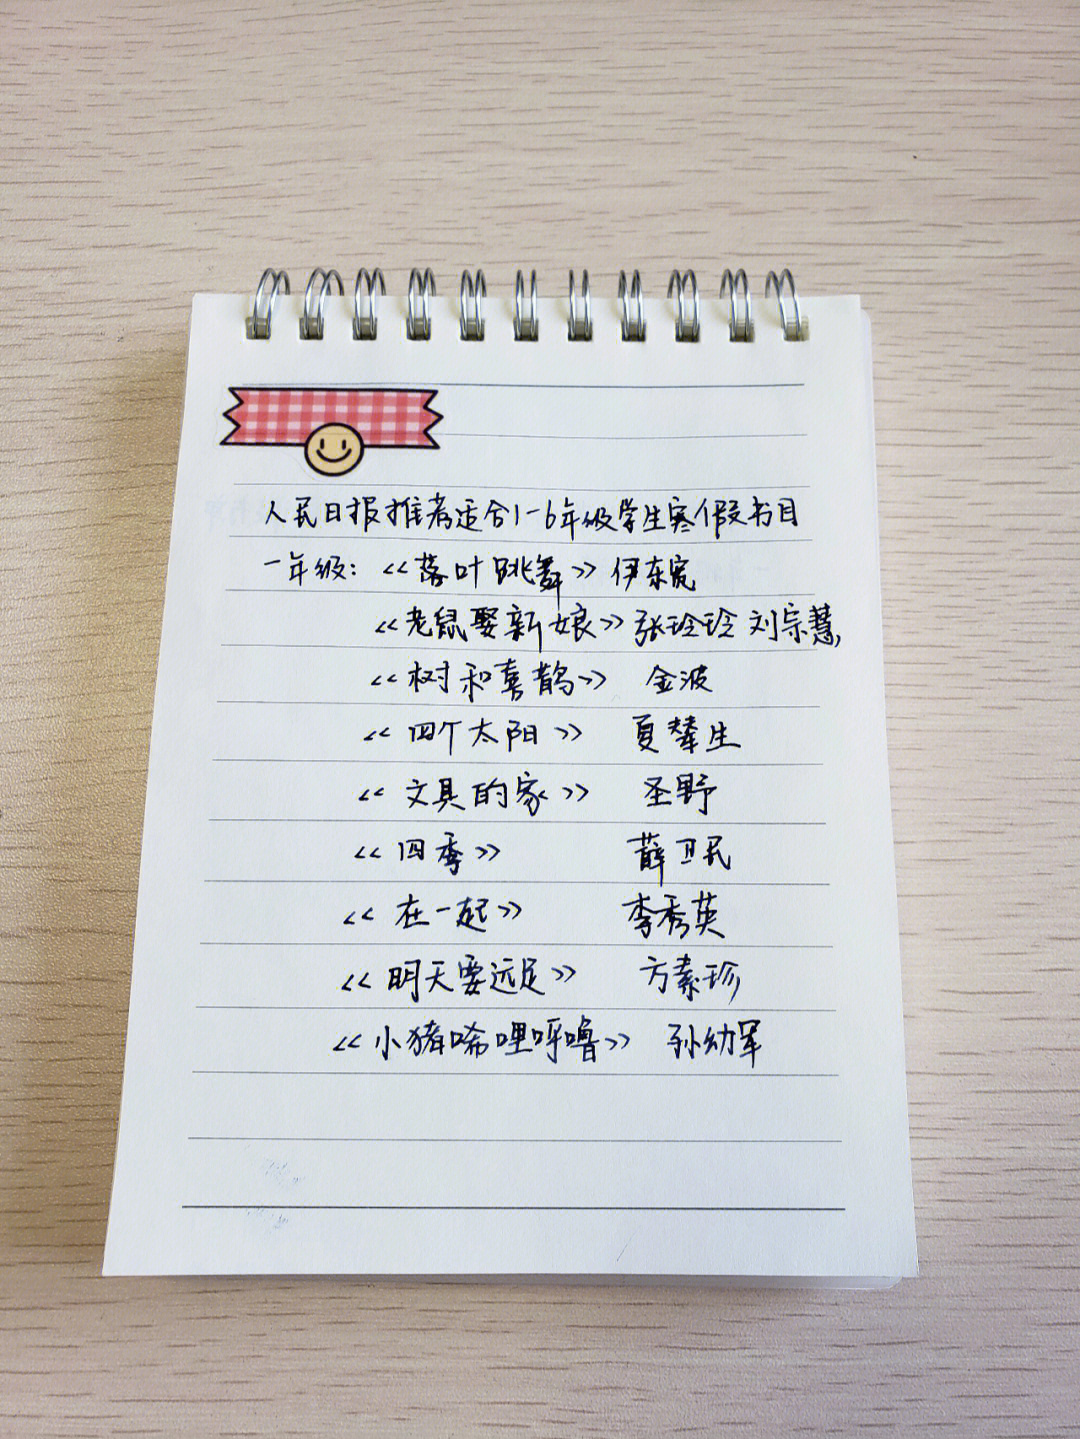 人民日报推荐适合1-6年级学生寒假书目
一年级：《落叶跳舞》 伊东宽
《老鼠娶新娘》 张玲玲 刘宗慧
《树和喜鹊》 金波
《四个太阳》 夏辇生
《文具的家》 圣野
《四季》 薛卫民
《在一起》 李秀英
《明天要远足》 方素珍
《小猪唏哩呼噜》 孙幼军